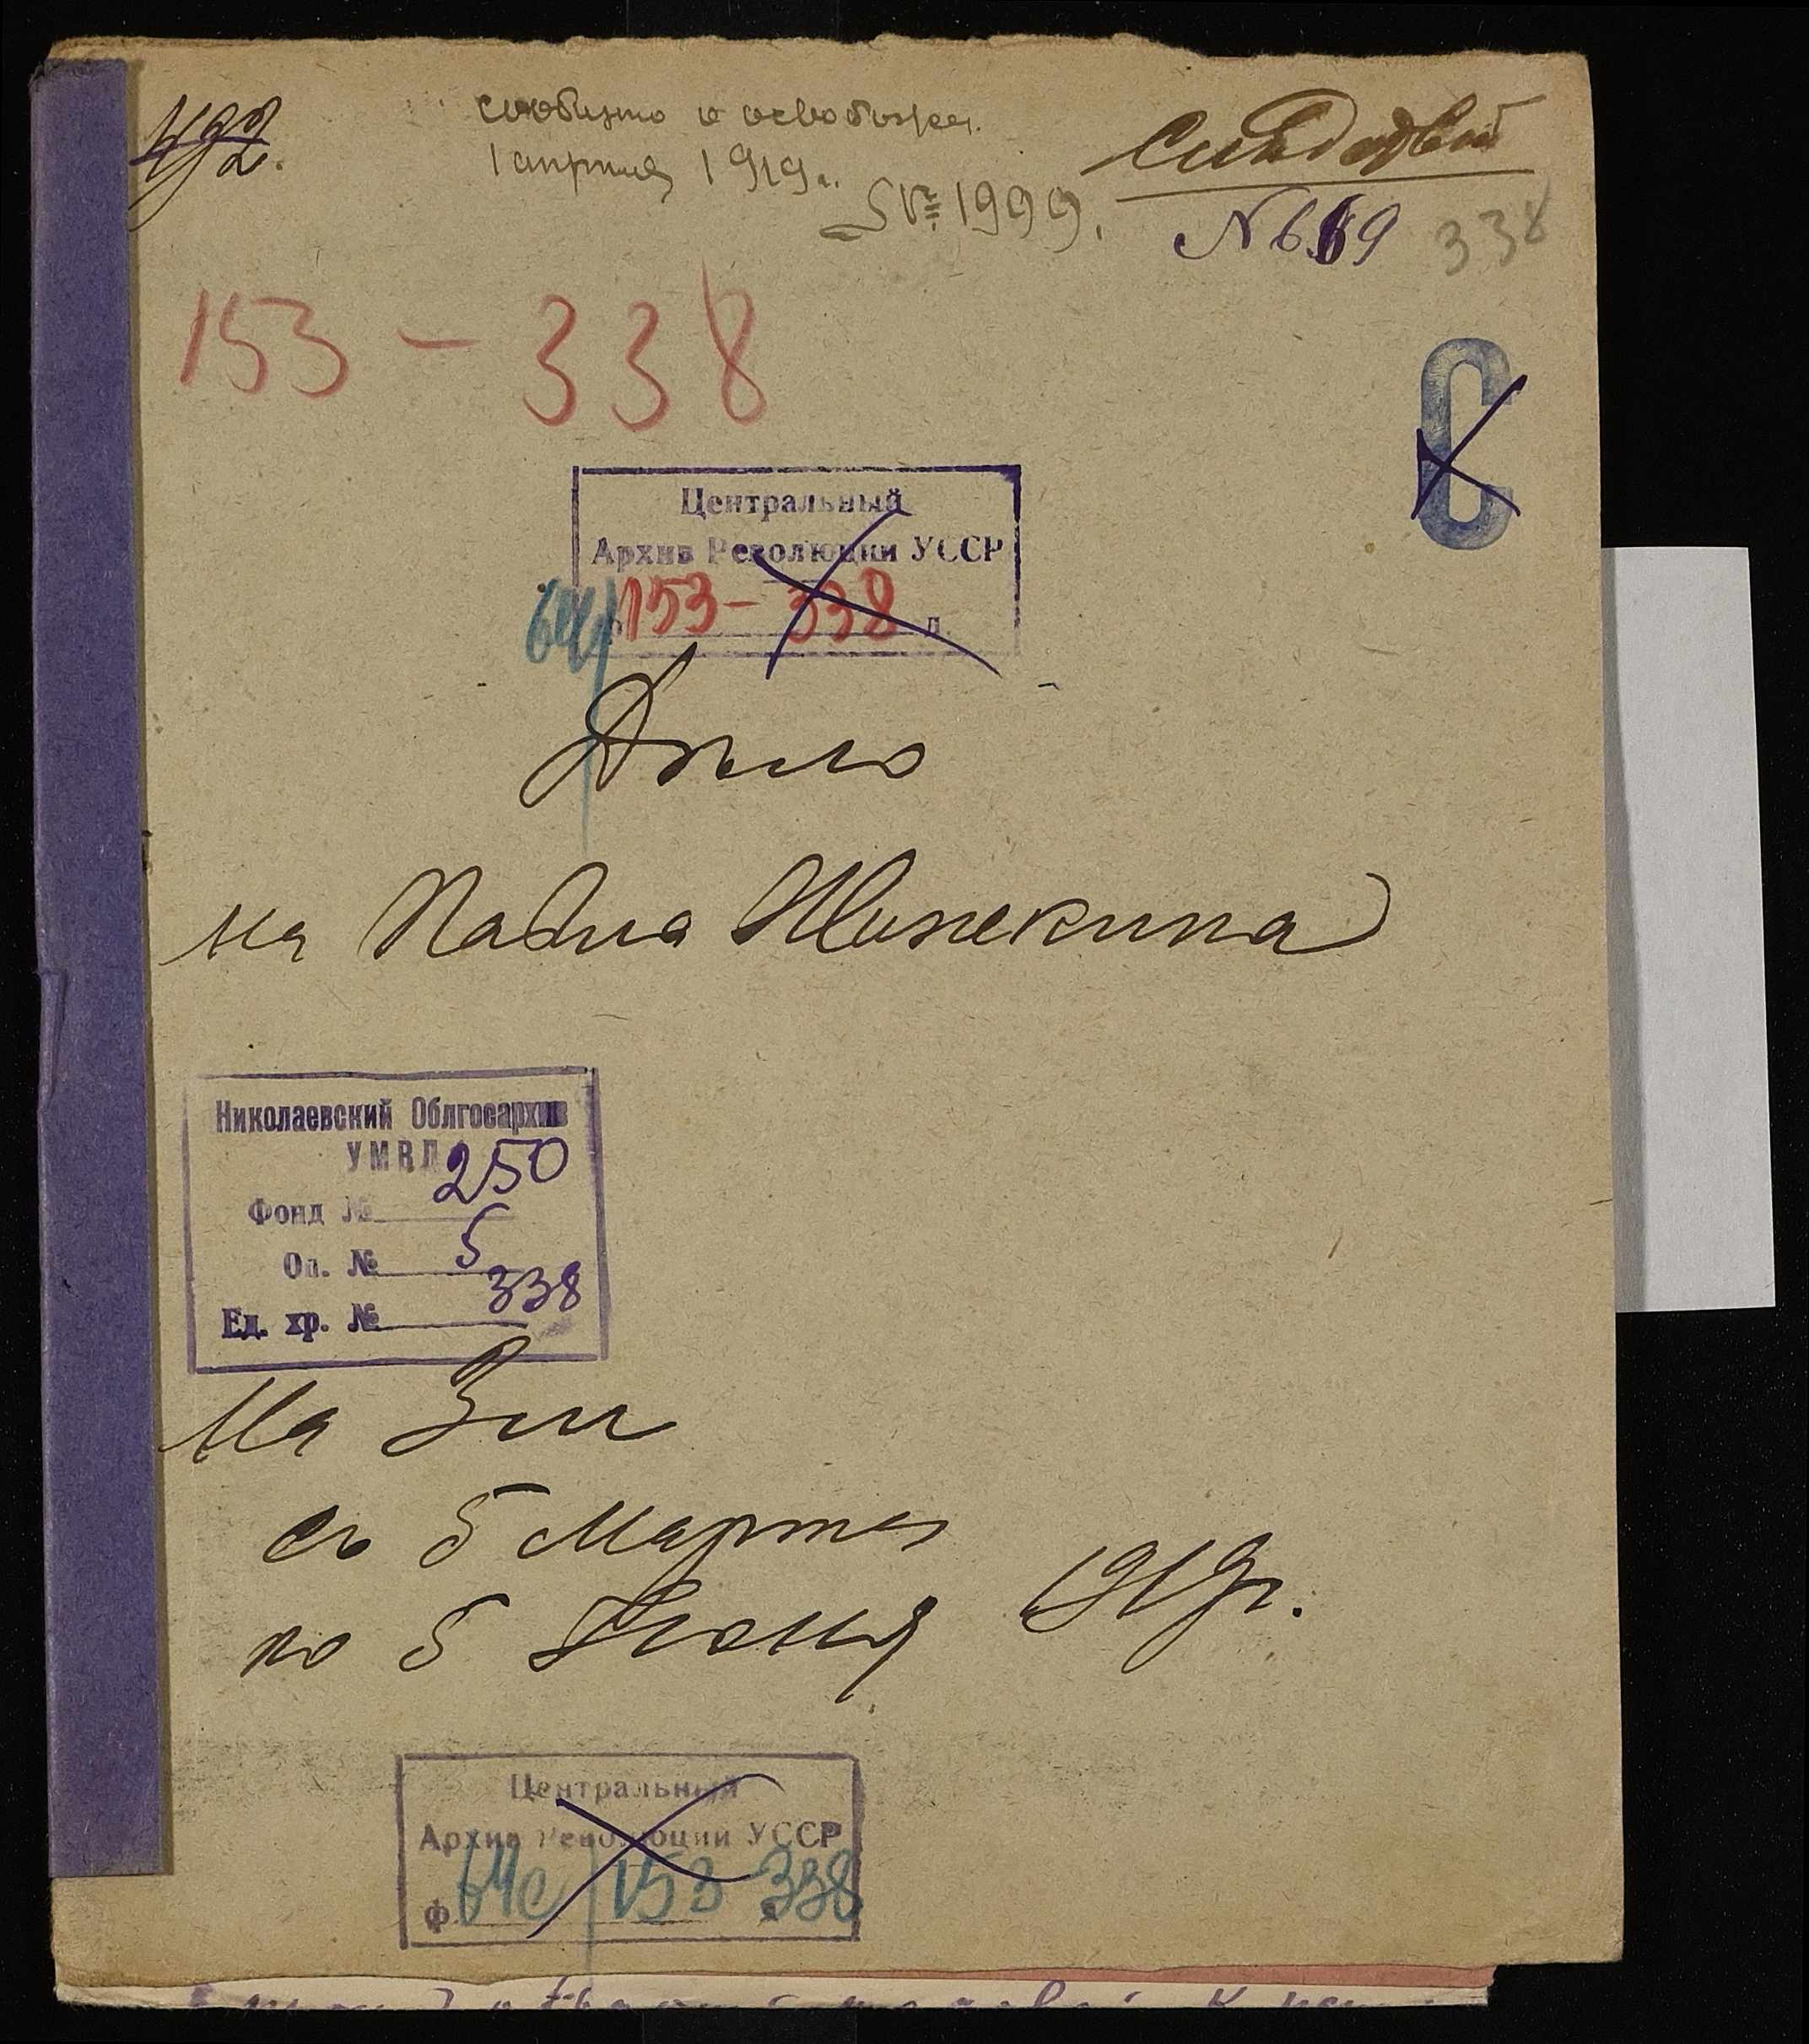 492.
сообщено о освобожд.
1 апреля 1919 г.
№ 1999.
Следствен
N 669 338
153 - 338
С
Центральный
Архив Революции УССР
64 153 - 338 д
Дѣло
на Павла
Николаевский Облгосархив
УМВД
Фонд № 250
Оп. № 5
Ед. хр. № 338
На 3
съ 5 Марта
по 5 Іюня 1919 г.
Центральный
Архив Революции УССР
ф. 64с 153 338